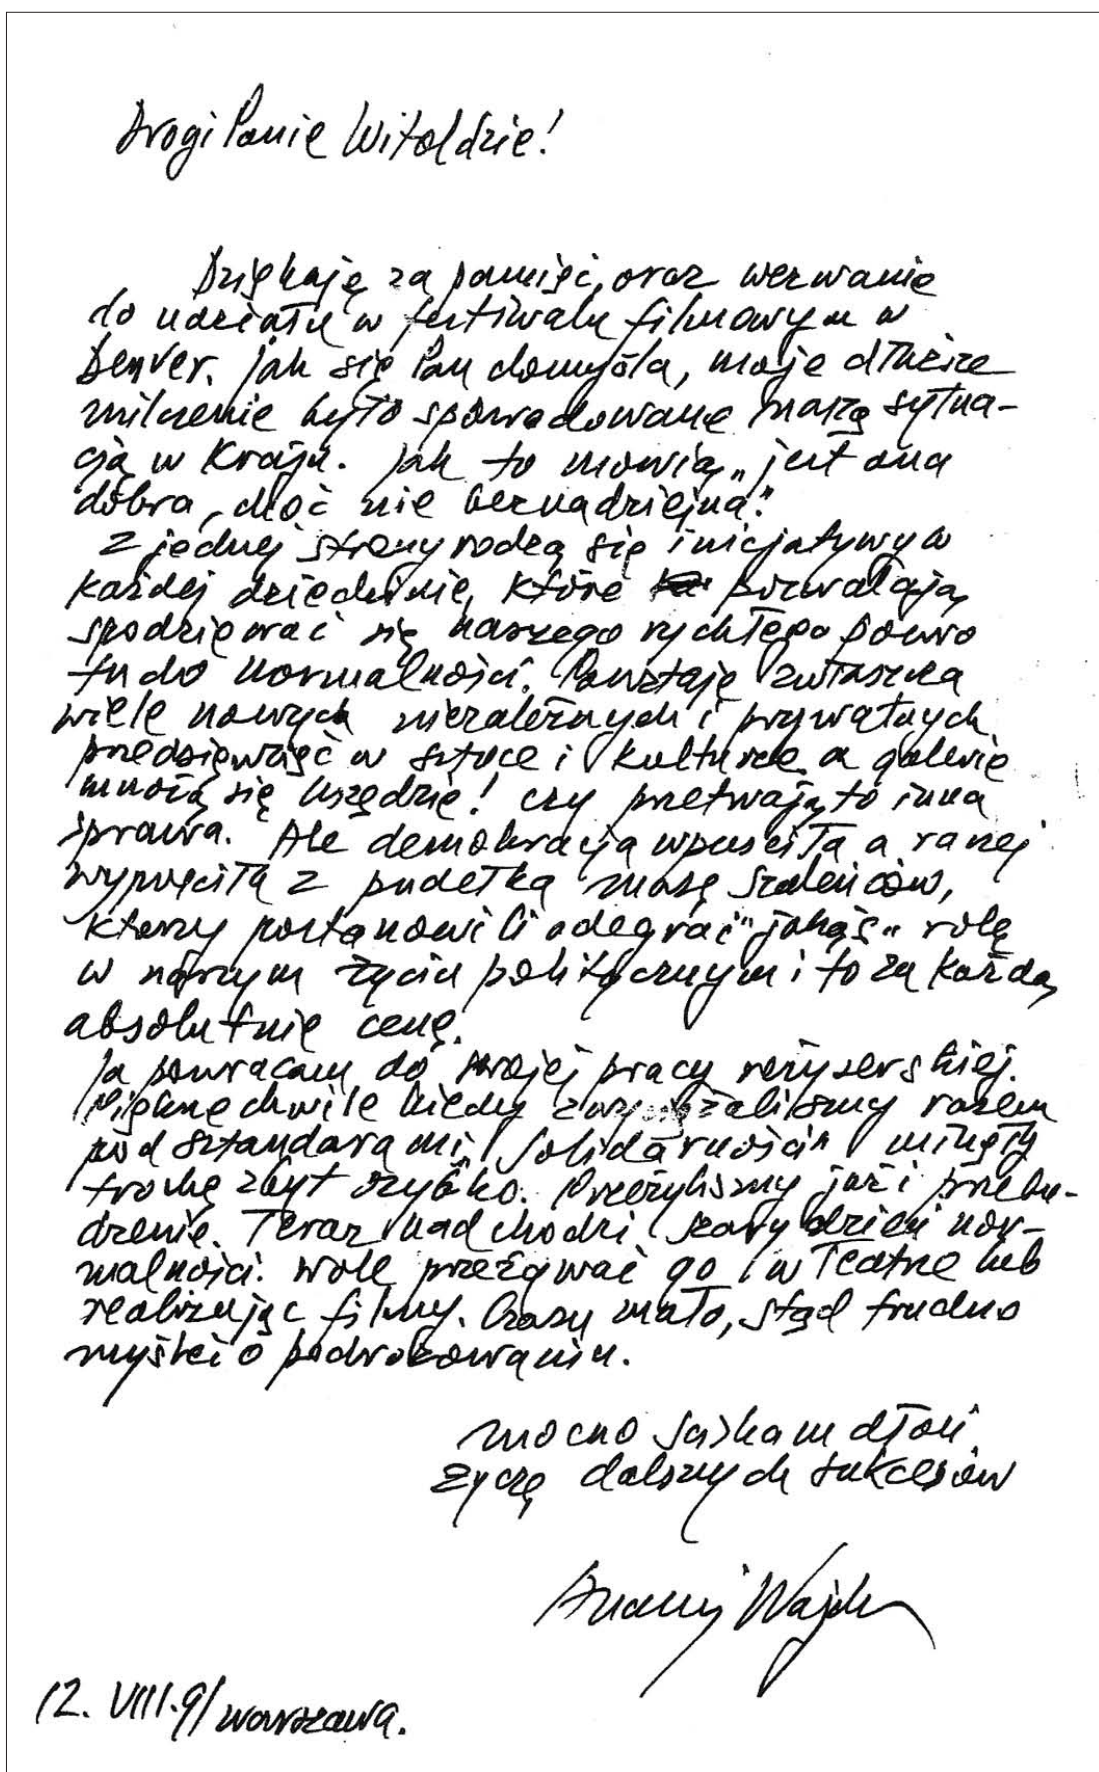 Drogi Panie Witoldzie!
Dziękuję za pamięć, oraz wezwanie
do udziału w festiwalu filmowym w
Denver. Jak się Pan domyśla, moje dłuższe
milczenie było spowodowane naszą sytua-
cją w Kraju. Jak to mówią „jest ona
dobra, choć nie beznadziejna".
Z jednej strony rodzą się inicjatywy w
każdej dziedzinie, które pozwalają
spodziewać się naszego rychłego powro
tu do normalności. Powstaje zwłaszcza
wiele nowych niezależnych i prywatnych
przedsięwzięć w sztuce i kulturze a galerie
mnożą się wszędzie! czy przetrwają to inna
sprawa. Ale demokracja wpuściła a raczej
wypuściła z pudełka masę szaleńców,
którzy postanowili odegrać "jakąś" rolę
w naszym życiu politycznym i to za każdą,
absolutnie cenę.
Ja powracam do swojej pracy reżyserskiej.
Piękne chwile kiedy zwyciężaliśmy razem
pod sztandarami „Solidarności" minęły
trochę zbyt szybko. Przeżyliśmy już i przebu-
dzenie. Teraz nadchodzi szary dzień nor-
malności. wolę przeżywać go w Teatrze lub
realizując filmy. Czasu mało, stąd trudno
myśleć o podróżowaniu.
mocno ściskam dłoń
życzę dalszych sukcesów
Andrzej Wajda
12. VIII. 91 warszawa.